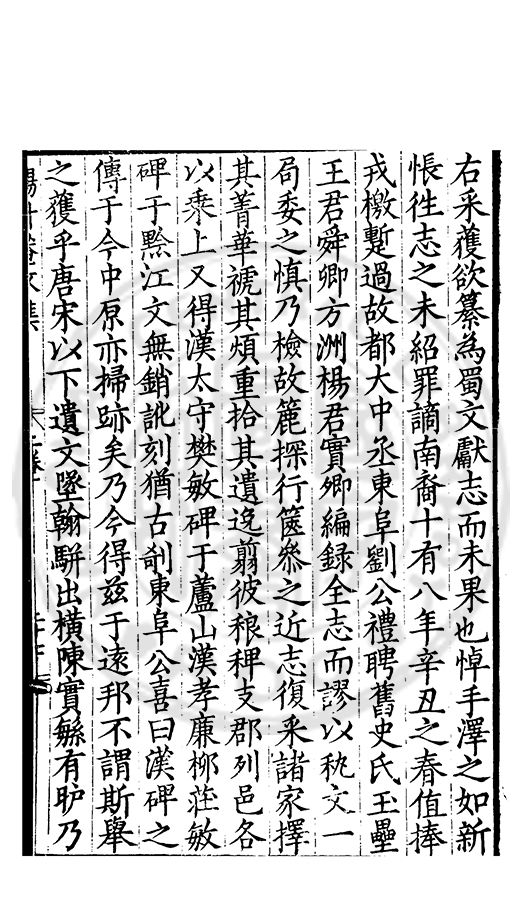 右采蒦欲纂為蜀文獻志而未果也悼手澤之如新
悵徃志之未紹罪謫南裔十有八年辛丑之春值捧
戎檄蹔過故都大中丞東阜劉公禮聘舊史氏玉壘
王君舜卿方洲楊君實卿編録全志而謬以秇文一
局委之慎乃檢故簏探行篋叅之近志復采諸家擇
其菁華褫其煩重拾其遺逸翦彼稂稗支郡列邑各
以乘上又得漢太守樊敏碑于蘆山漢孝廉柳莊敏
碑于黔江文無銷訛刻猶古剞東阜公喜曰漢碑之
傳于今中原亦掃跡矣乃今得兹于遠邦不謂斯舉
之獲乎唐宋以下遺文墜翰駢出橫陳實繇有昈乃